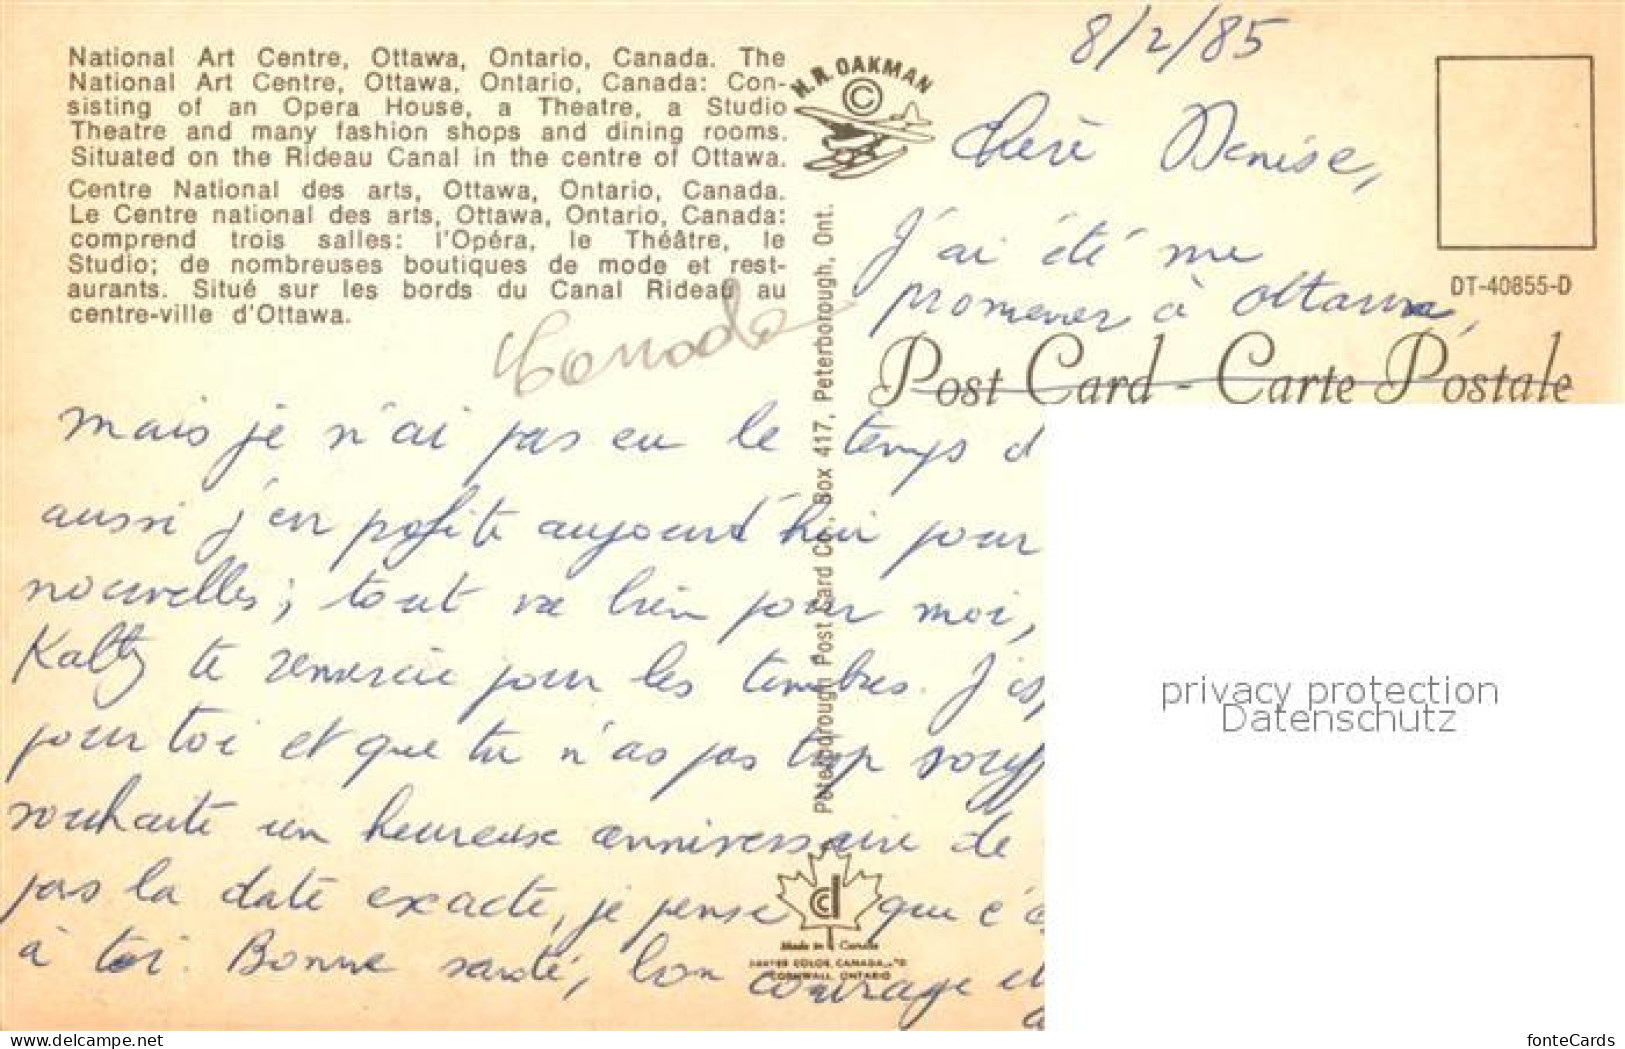 National Art Centre, Ottawa, Ontario, Canada. The
National Art Centre, Ottawa, Ontario, Canada: Con-
sisting of an Opera House, a Theatre, a Studio
Theatre and many fashion shops and dining rooms.
Situated on the Rideau Canal in the centre of Ottawa.
Centre National des arts, Ottawa, Ontario, Canada.
Le Centre national des arts, Ottawa, Ontario, Canada:
comprend trois salles: l'Opéra, le Théâtre, le
Studio; de nombreuses boutiques de mode et rest-
aurants. Situé sur les bords du Canal Rideau au
centre-ville d'Ottawa.
Canada
H.R. OAKMAN
©
Peterborough Post Card Co., Box 417, Peterborough, Ont.
DT-40855-D
Post Card - Carte Postale
8/2/85
Chère Denise,
J'ai été me
promener à Ottawa,
mais je n'ai pas eu le temps d
aussi j'en profite aujourd'hui pour
nouvelles; tout va bien pour moi,
Kathy te remercie pour les timbres. J'es
pour toi et que tu n'as pas trop souff
souhaite un heureux anniversaire de
pas la date exacte, je pense que c'é
à toi. Bonne santé, bon courage et
Made in Canada
DEXTER COLOR, CANADA, LTD
CORNWALL, ONTARIO
privacy protection
Datenschutz
www.delcampe.net
fonteCards